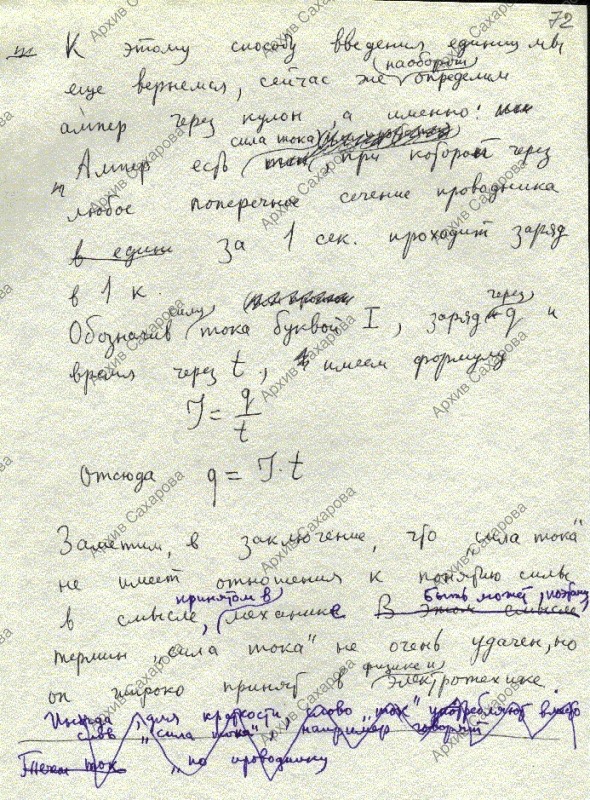 72
К этому способу введения единиц мы
еще вернемся, сейчас же наоборот определим
ампер через кулон, а именно:
Ампер есть сила тока, при которой через
любое поперечное сечение проводника
в един за 1 сек. проходит заряд
в 1 к.
Обозначив силу тока буквой I, заряд через q и
время через t, имеем формулу
J = q/t
Отсюда q = J·t
Заметим, в заключение, что „сила тока"
не имеет отношения к понятию силы
в смысле, принятом в механике В этом смысле Быть может, поэтому
термин „сила тока" не очень удачен, но
он широко принят в физике и электротехнике.
Иногда, для краткости, слово „ток" употребляют вместо
слов „сила тока", например говорят
Течет ток „по проводнику
Архив Сахарова